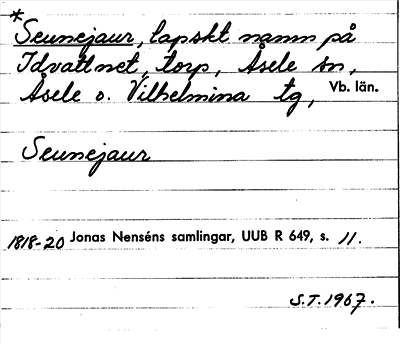 *
Seunejaur, lapskt namn på
Idvattnet, torp, Åsele sn,
Åsele o. Vilhelmina tg, Vb. län.
Seunejaur
1818-20 Jonas Nenséns samlingar, UUB R 649, s. 11.
S.T. 1967.